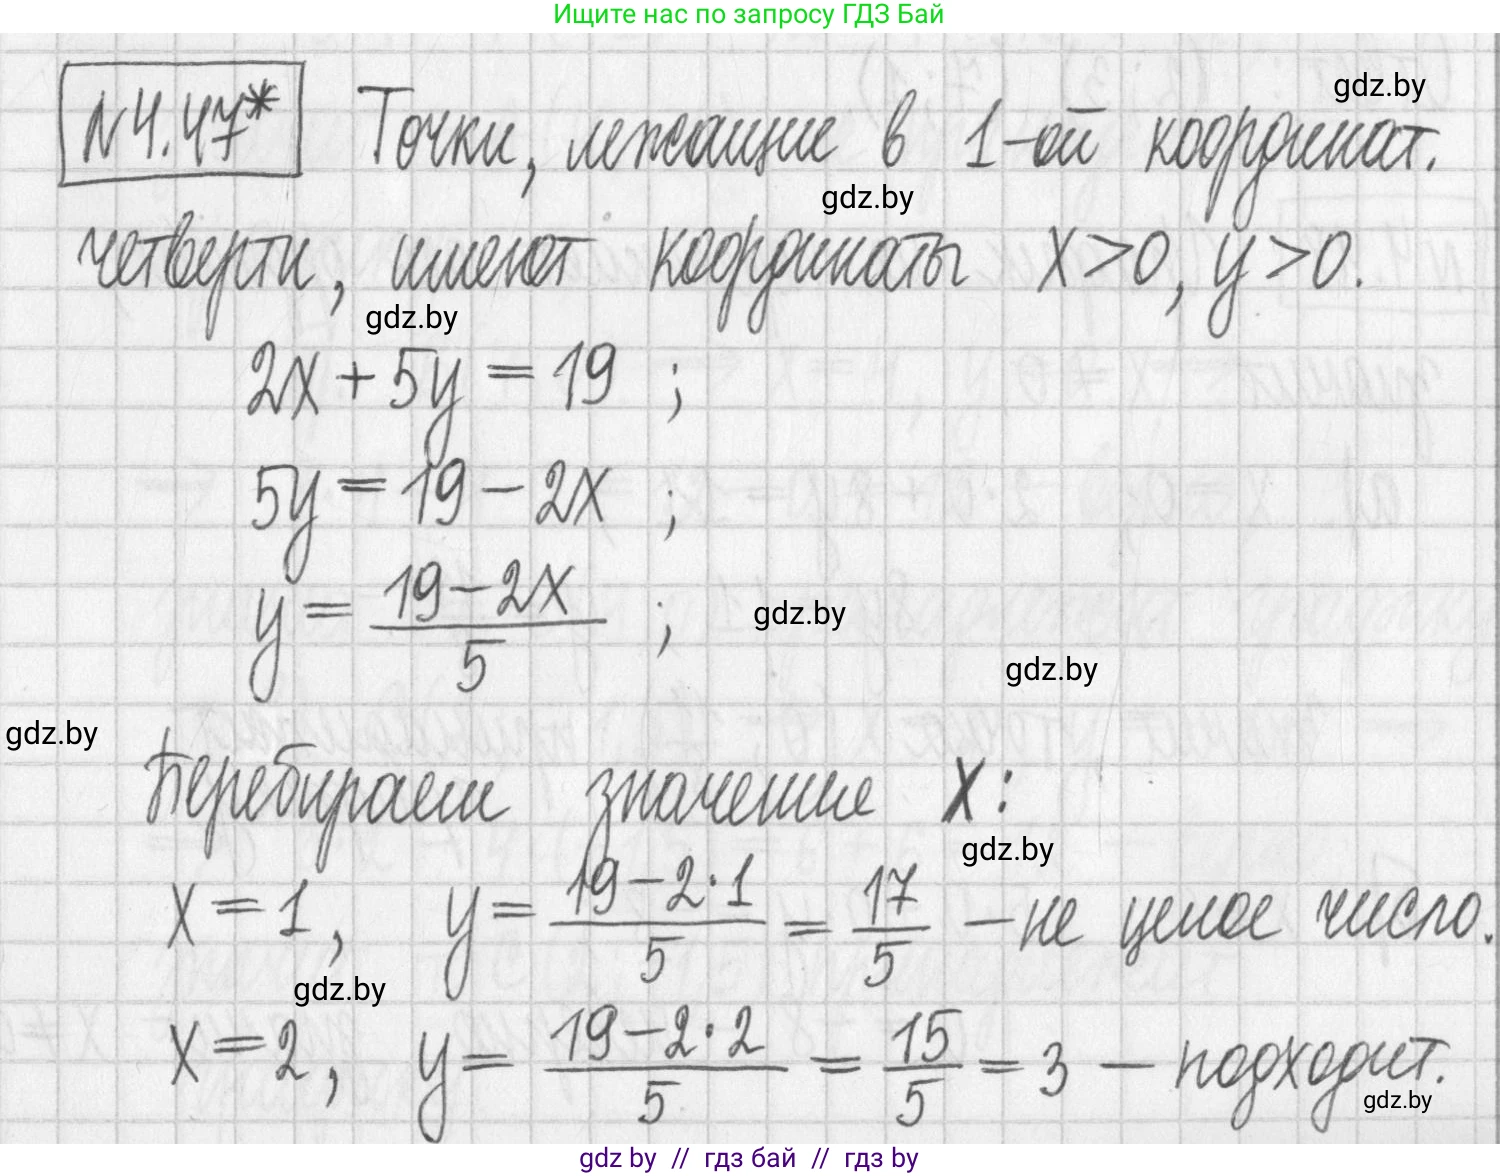 Ищите нас по запросу ГДЗ Бай
gdz.by
N4.47* Точки, лежащие в 1-ой координат.
gdz.by
четверти, имеют координаты x>0, y>0.
gdz.by
2x + 5y = 19 ;
5y = 19 - 2x ;
y = (19 - 2x)/5 ;
gdz.by
gdz.by
gdz.by
Перебираем значение x:
gdz.by
x = 1, y = (19 - 2·1)/5 = 17/5 - не целое число.
gdz.by
x = 2, y = (19 - 2·2)/5 = 15/5 = 3 - подходит.
gdz.by
gdz by // гдз бай // гдз by